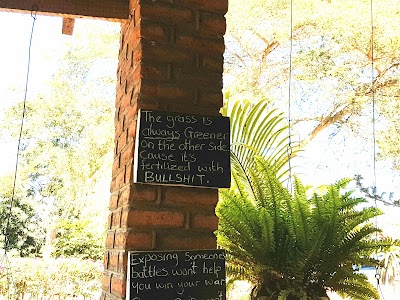 The grass is
always Greener
on the other side
Cause it's
fertilized with
BULLSHIT.
Exposing Someone's
battles want help
you win your war